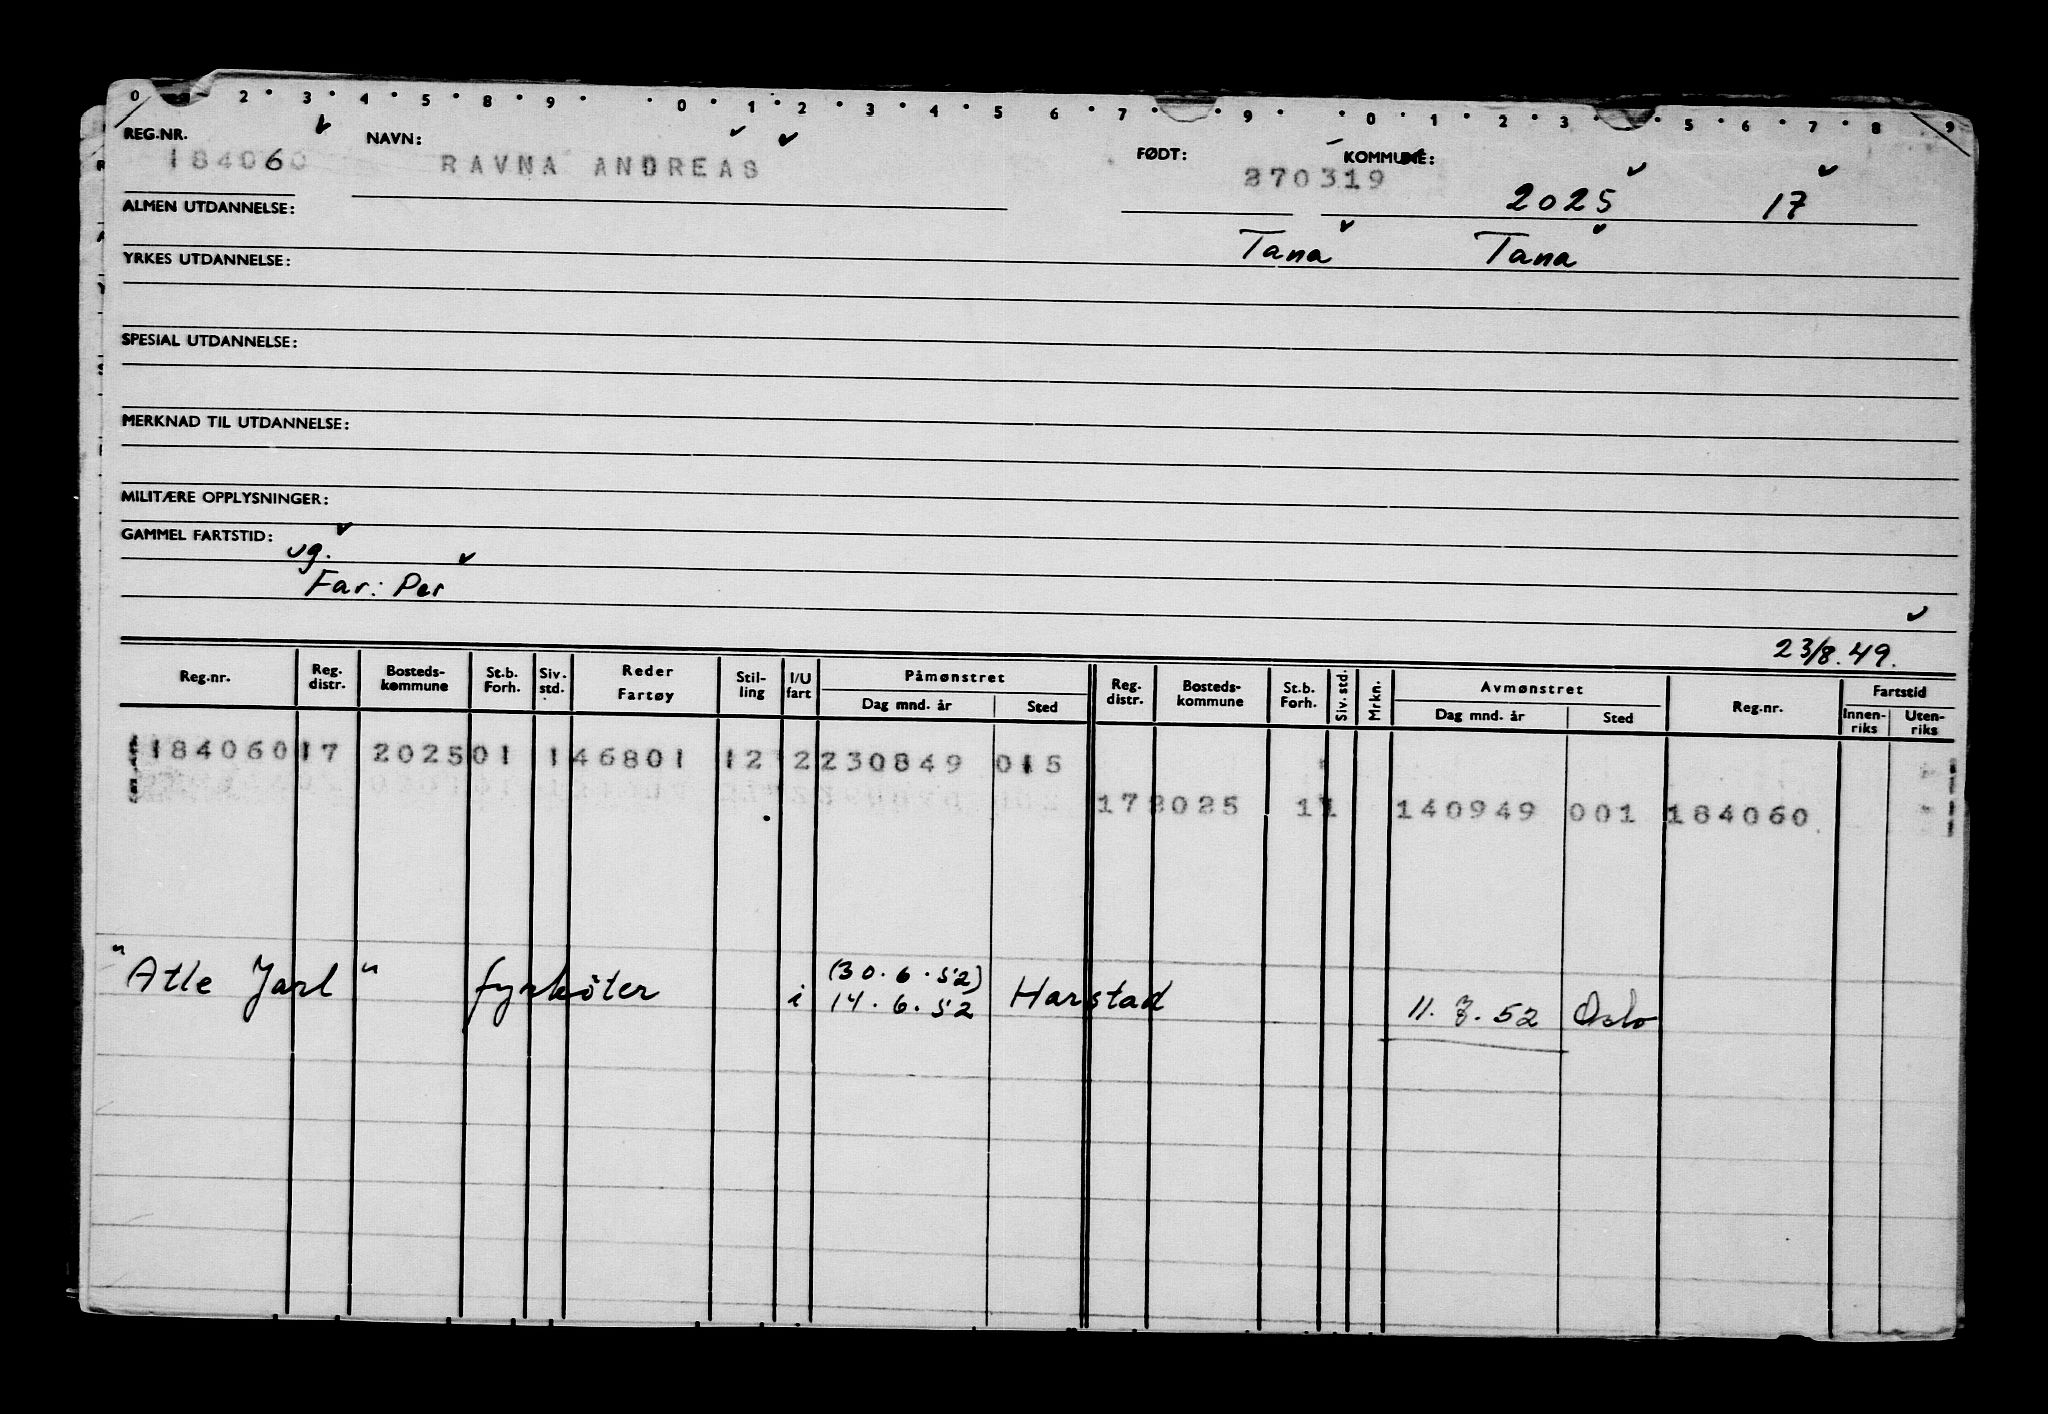 0 2 3 4 5 8 9 0 1 2 3 4 5 6 7 9 0 1 2 3 5 6 7 8 9
REG.NR. NAVN: FØDT: KOMMUNE:
184060 RAVNA ANDREAS 270319 2025 17
ALMEN UTDANNELSE:
Tana Tana
YRKES UTDANNELSE:
SPESIAL UTDANNELSE:
MERKNAD TIL UTDANNELSE:
MILITÆRE OPPLYSNINGER:
GAMMEL FARTSTID:
ug.
Far: Per
23/8.49.
Reg.nr. Reg. distr. Bosteds- kommune St.b. Forh. Siv. std. Reder Fartøy Stil- ling I/U fart Påmønstret Dag mnd. år Sted Reg. distr. Bosteds- kommune St.b. Forh. Siv. std. Mrkn. Avmønstret Dag mnd. år Sted Reg.nr. Fartstid Innen- riks Uten- riks
184060 17 2025 01 1 46801 12 2 230849 015
17 2025 11 140949 001 184060
(30.6.52)
"Atle Jarl" fyrbøter i 14.6.52 Harstad 11.7.52 Oslo